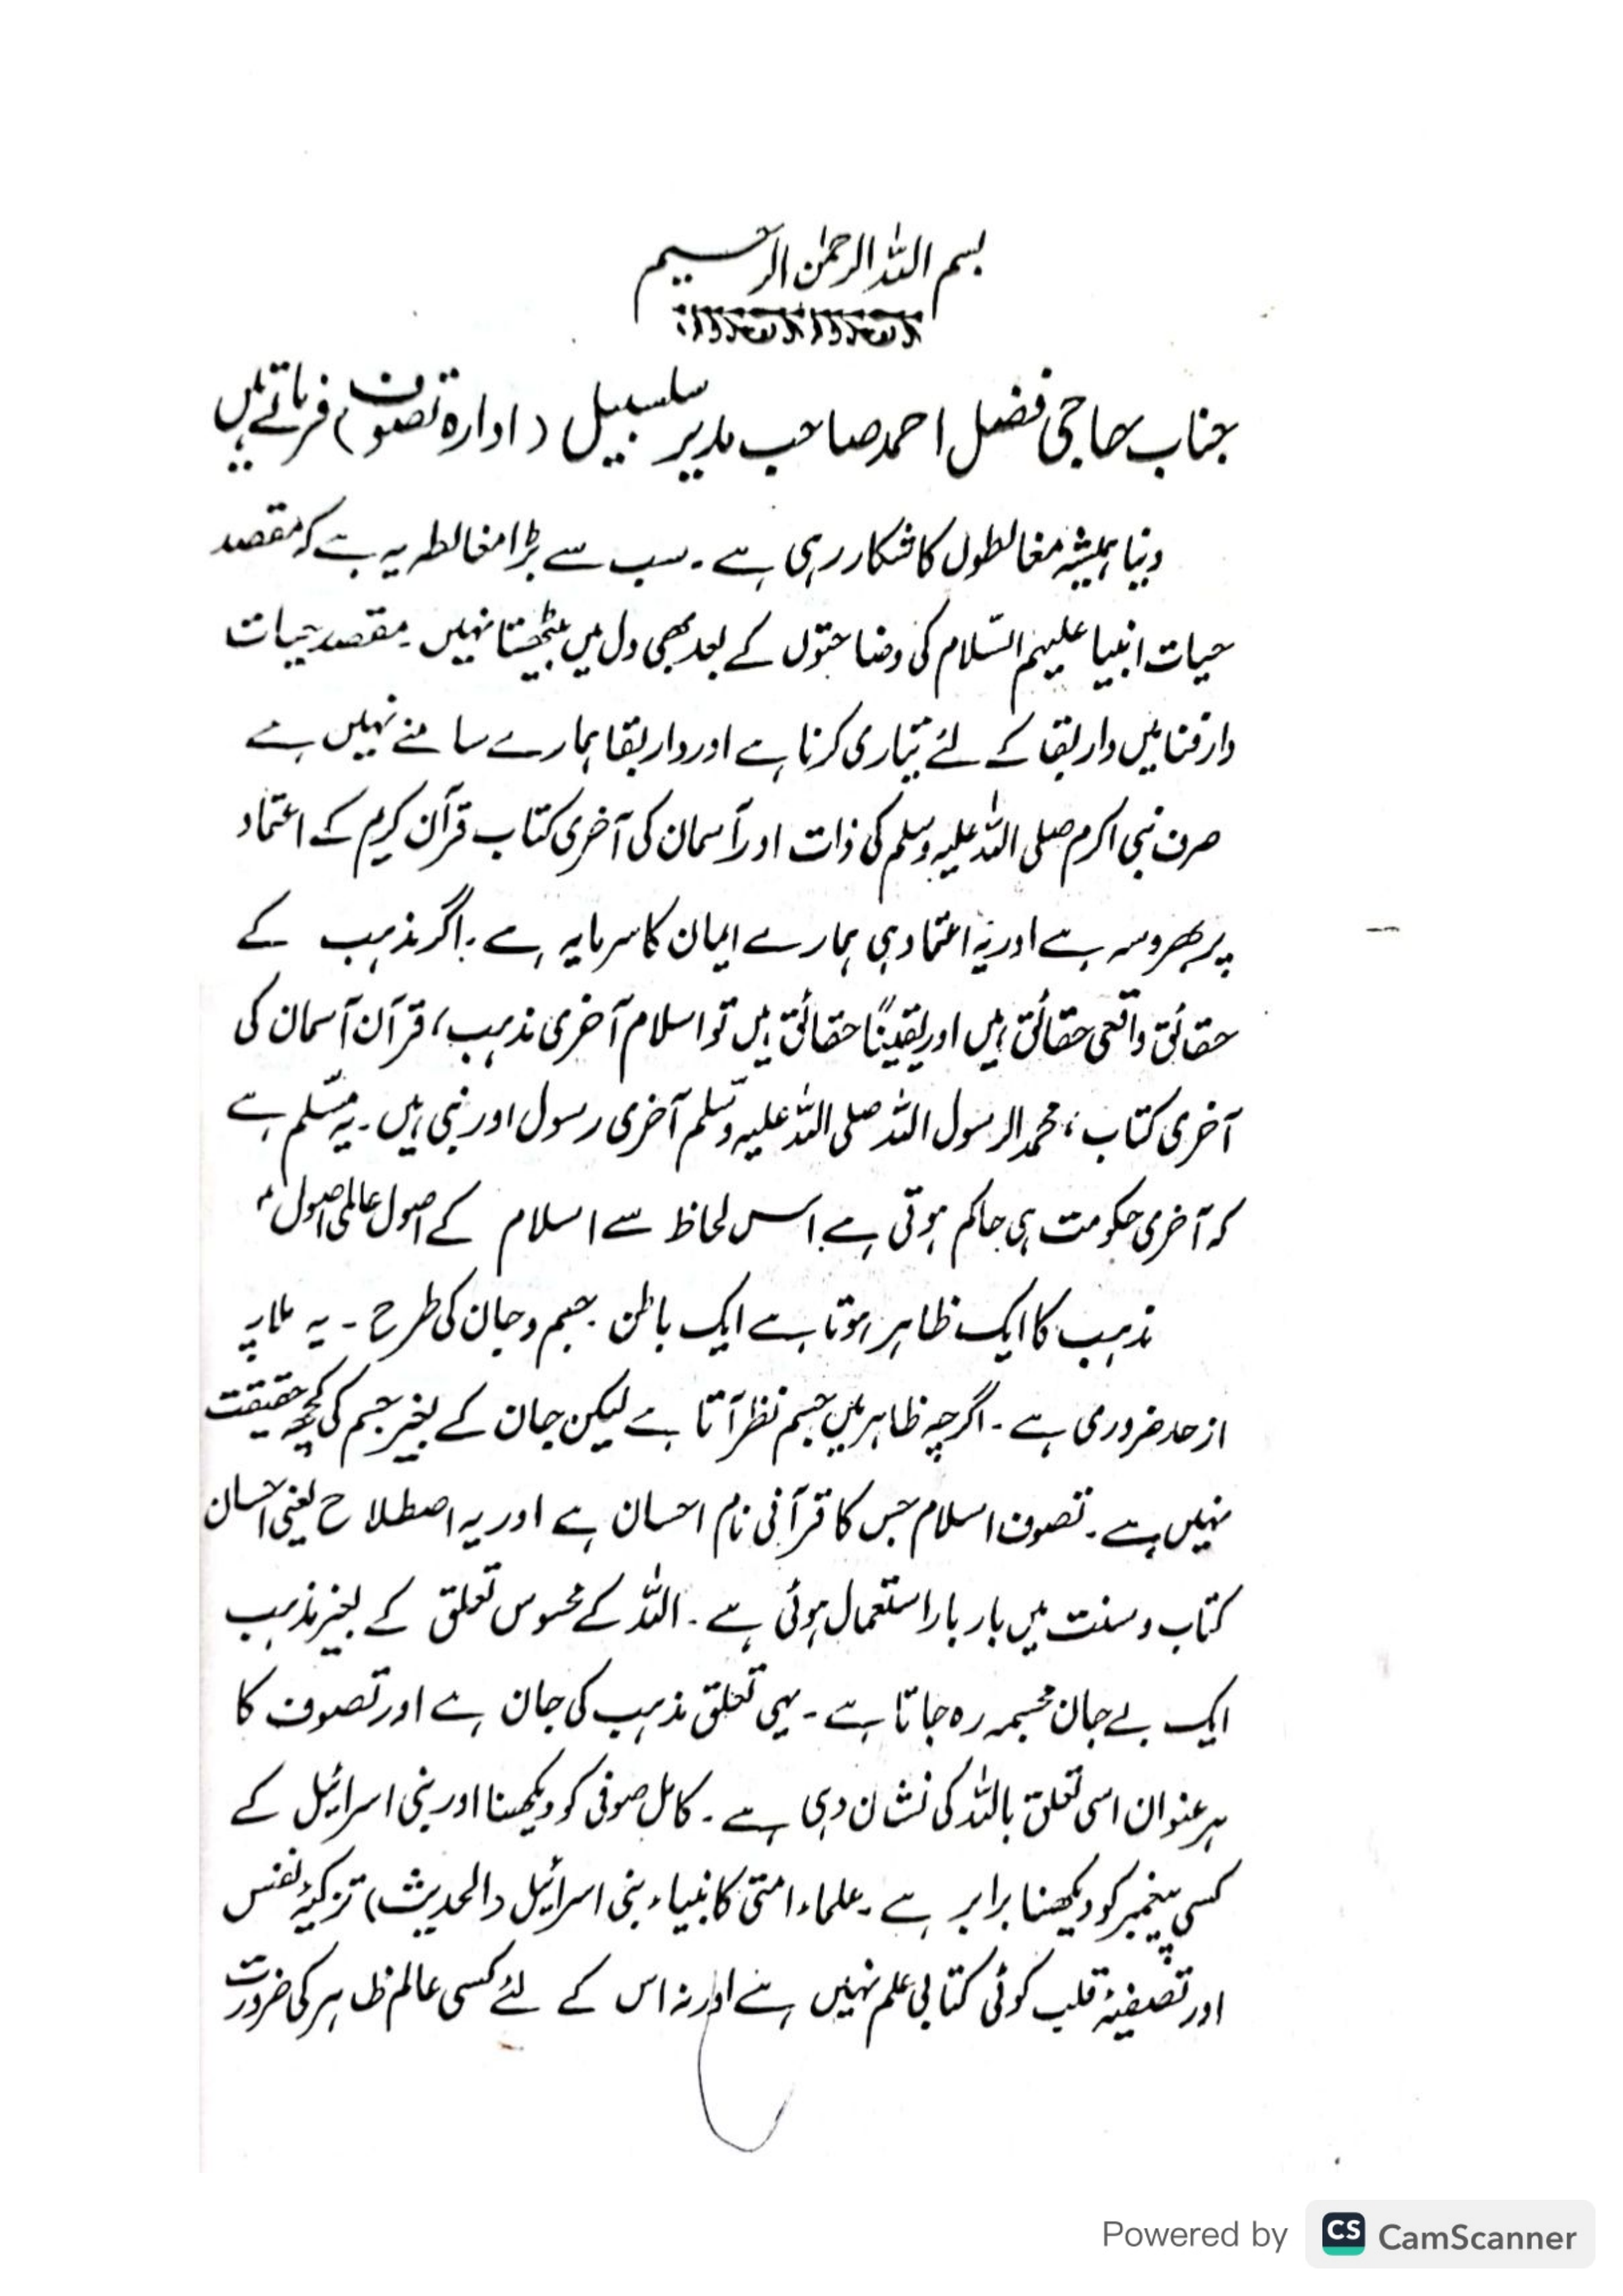 بسم اللہ الرحمٰن الرحیم
جناب حاجی فضل احمد صاحب مدیر سلسبیل (ادارہ تصوف) فرماتے ہیں
دنیا ہمیشہ مغالطوں کا شکار رہی ہے۔ سب سے بڑا مغالطہ یہ ہے کہ مقصد
حیات انبیا علیہم السّلام کی وضاحتوں کے بعد بھی دل میں بیٹھتا نہیں۔ مقصد حیات
دار فنا میں دار بقا کے لئے تیاری کرنا ہے اور دار بقا ہمارے سامنے نہیں ہے
صرف نبی اکرم صلی اللہ علیہ وسلم کی ذات اور آسمان کی آخری کتاب قرآن کریم کے اعتماد
پر بھروسہ ہے اور یہ اعتماد ہی ہمارے ایمان کا سرمایہ ہے۔ اگر مذہب کے
حقائق واقعی حقائق ہیں اور یقیناً حقائق ہیں تو اسلام آخری مذہب، قرآن آسمان کی
آخری کتاب، محمد الرسول اللہ صلی اللہ علیہ وسّلم آخری رسول اور نبی ہیں۔ یہ مسّلم ہے
کہ آخری حکومت ہی حاکم ہوتی ہے۔ اس لحاظ سے اسلام کے اصول عالمی اصول
مذہب کا ایک ظاہر ہوتا ہے ایک باطن۔ جسم و جان کی طرح۔ یہ ملاپ
از حد ضروری ہے۔ اگرچہ ظاہر میں جسم نظر آتا ہے لیکن جان کے بغیر جسم کی کچھ حقیقت
نہیں ہے۔ تصوف اسلام جس کا قرآنی نام احسان ہے اور یہ اصطلاح یعنی احسان
کتاب و سنت میں بار بار استعمال ہوئی ہے۔ اللہ کے محسوس تعلق کے بغیر مذہب
ایک بے جان مجسمہ رہ جاتا ہے۔ یہی تعلق مذہب کی جان ہے اور تصوف کا
ہر عنوان اسی تعلق باللہ کی نشان دہی ہے۔ کامل صوفی کو دیکھنا اور بنی اسرائیل کے
کسی پیغمبر کو دیکھنا برابر ہے۔ علماء امتی کانبیاء بنی اسرائیل (الحدیث) تزکیۂ نفس
اور تصفیۂ قلب کوئی کتابی علم نہیں ہے اور نہ اس کے لئے کسی عالم ظاہر کی ضرورت
Powered by CS CamScanner